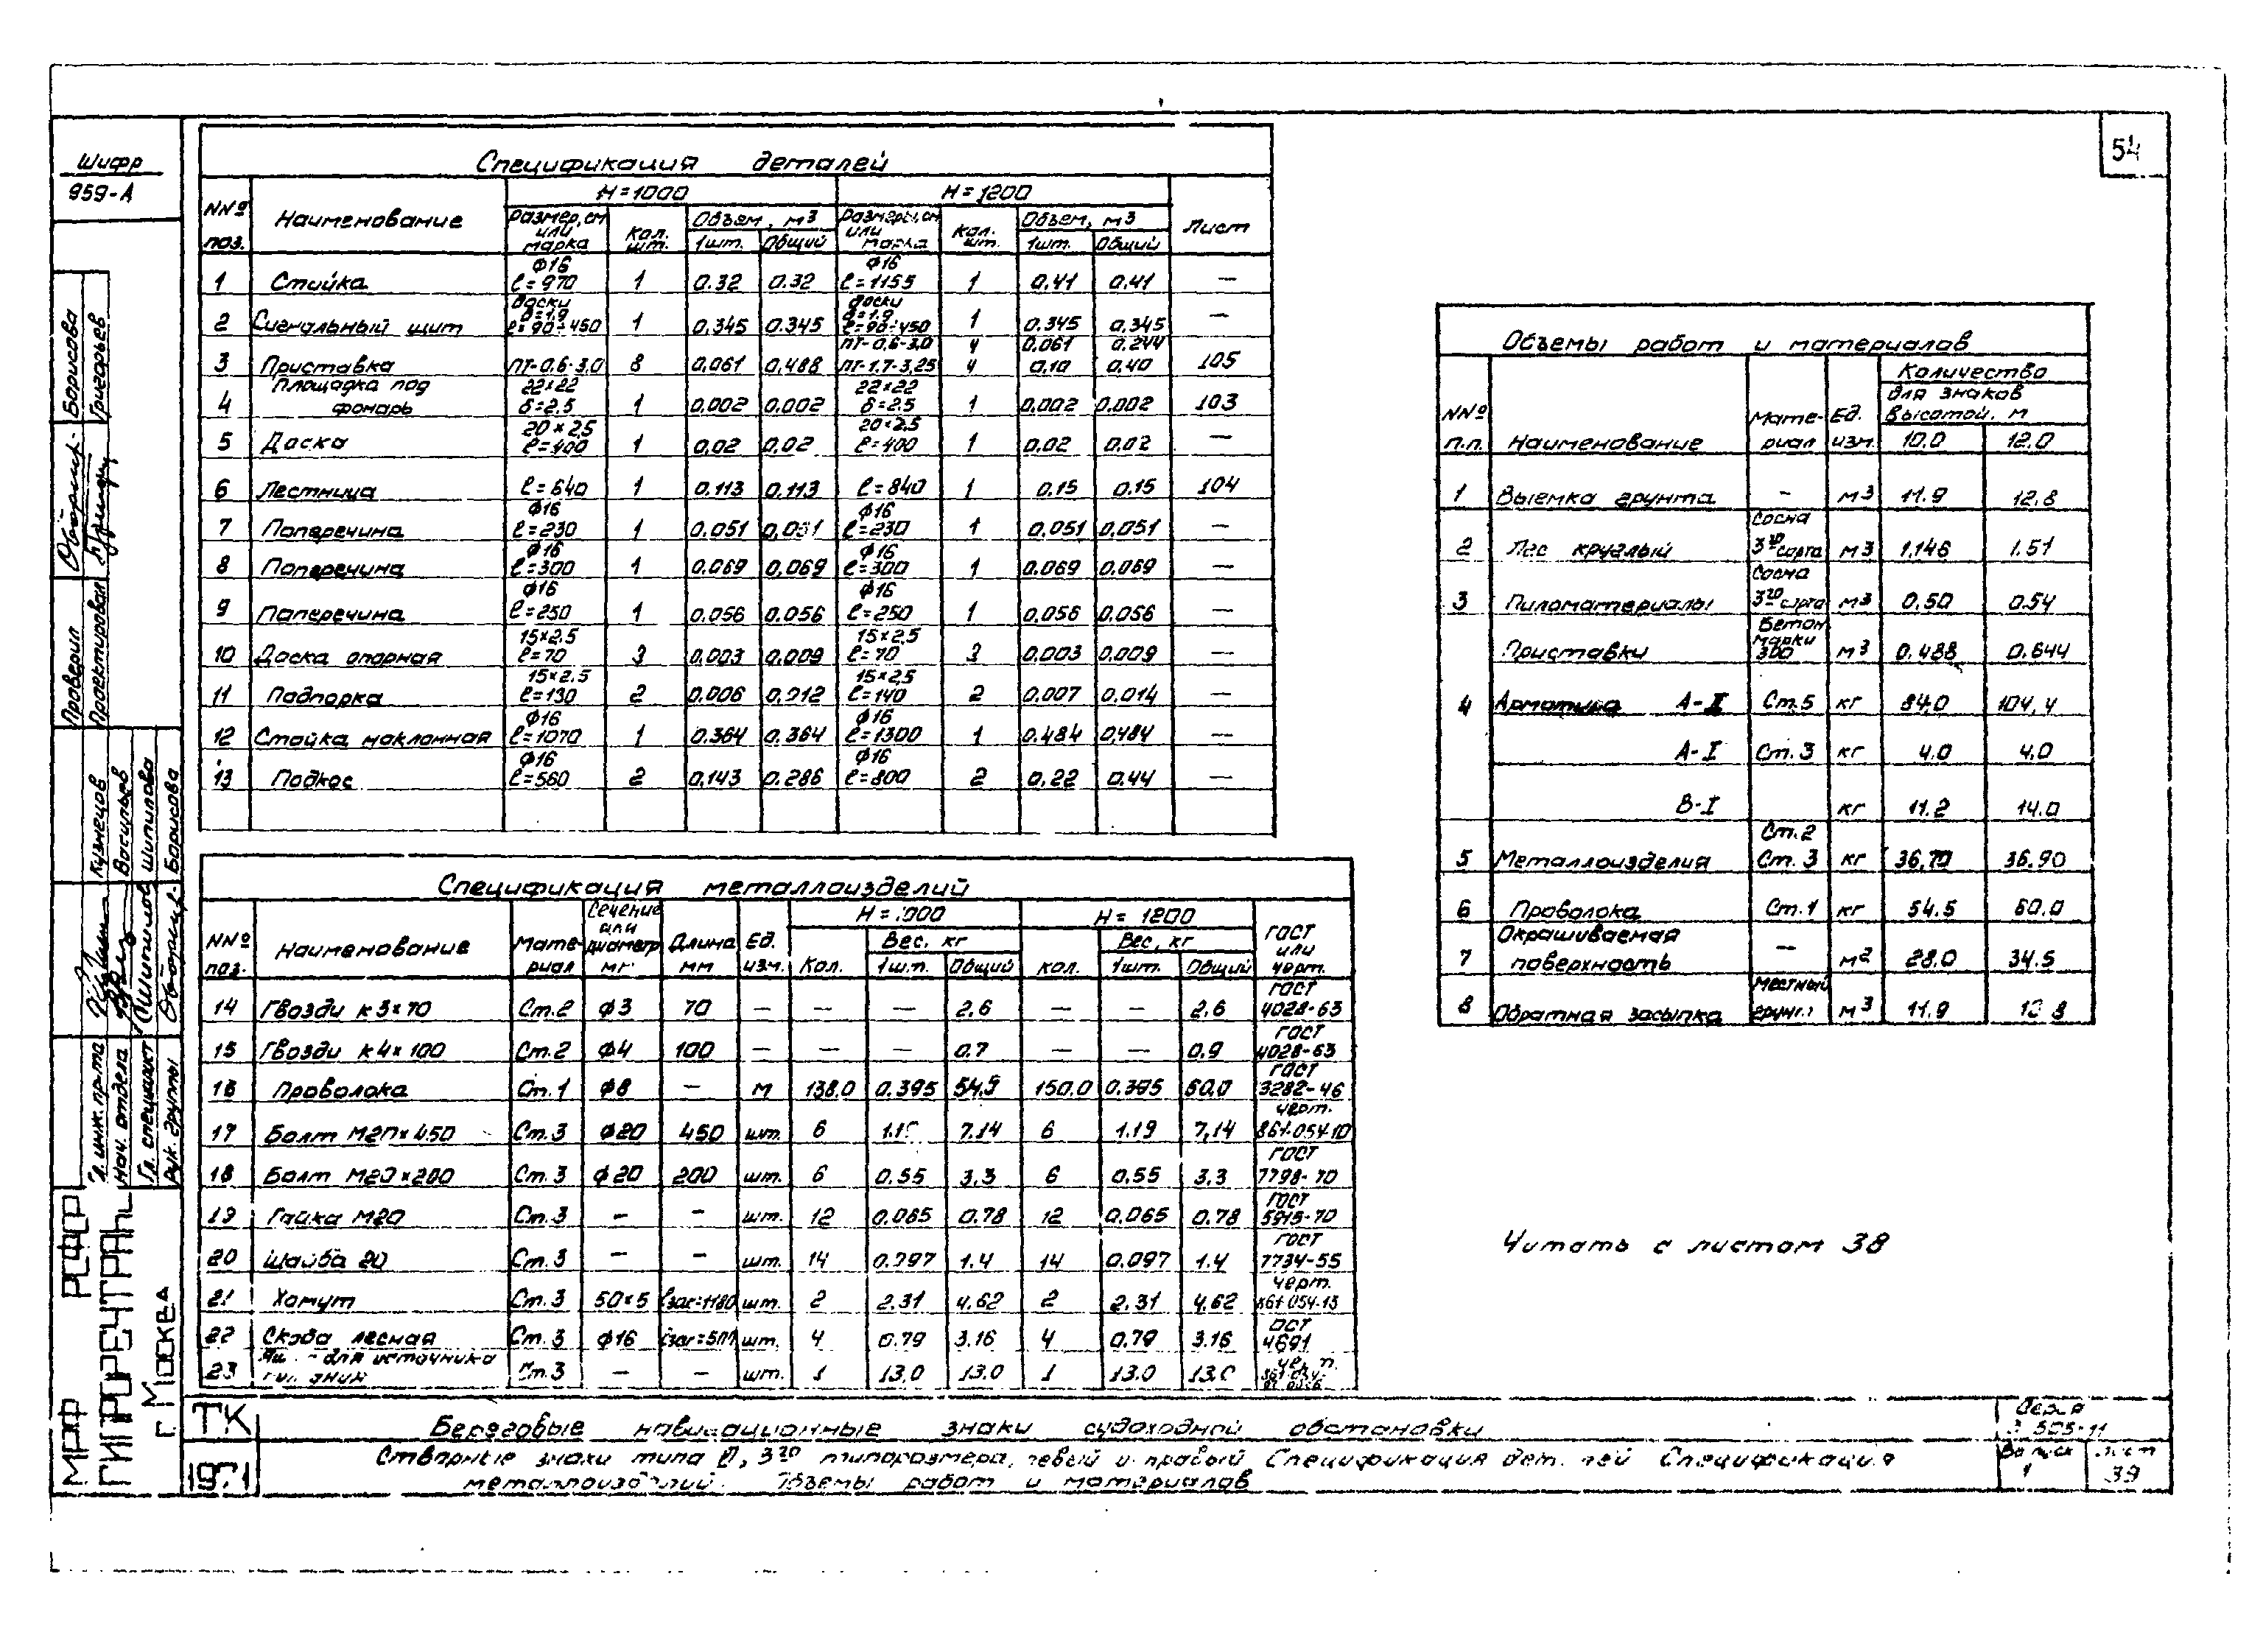 54
Шифр
959-А
Спецификация деталей
NNº поз. Наименование H=1000 H=1200 Лист
Размер, см или марка Кол. шт. Объем, м3 Размеры, см или марка Кол. шт. Объем, м3
1шт. Общий 1шт. Общий
1 Стойка ϕ16 ℓ=970 1 0.32 0.32 ϕ16 ℓ=1155 1 0.41 0.41 —
2 Сигнальный щит доски δ=1.9 ℓ=90÷450 1 0.345 0.345 доски δ=1.9 ℓ=90÷450 1 0.345 0.345 —
ПТ-0,6-3,0 4 0,061 0.244
3 Приставка ПТ-0,6-3,0 8 0,061 0,488 ПТ-1,7-3,25 4 0,10 0,40 105
4 Площадка под фонарь 22×22 δ=2,5 1 0.002 0.002 22×22 δ=2.5 1 0.002 0.002 103
5 Доска 20×2,5 ℓ=400 1 0,02 0,02 20×2,5 ℓ=400 1 0.02 0.02 —
6 Лестница ℓ=640 1 0.113 0.113 ℓ=840 1 0.15 0.15 104
7 Поперечина ϕ16 ℓ=230 1 0.051 0,051 ϕ16 ℓ=230 1 0.051 0,051 —
8 Поперечина ϕ16 ℓ=300 1 0.069 0,069 ϕ16 ℓ=300 1 0.069 0.069 —
9 Поперечина ϕ16 ℓ=250 1 0.056 0.056 ϕ16 ℓ=250 1 0.056 0,056 —
10 Доска опорная 15×2,5 ℓ=70 3 0,003 0,009 15×2,5 ℓ=70 3 0.003 0,009 —
11 Подпорка 15×2.5 ℓ=130 2 0.006 0,012 15×2,5 ℓ=140 2 0,007 0.014 —
12 Стойка наклонная ϕ16 ℓ=1070 1 0.364 0.364 ϕ16 ℓ=1300 1 0.484 0,484 —
13 Подкос ϕ16 ℓ=560 2 0,143 0.286 ϕ16 ℓ=800 2 0,22 0.44 —
Спецификация металлоизделий
NNº поз. Наименование Материал Сечение или диаметр Длина мм Ед. изм. H=1200 ГОСТ или черт.
Кол. Вес, кг Кол. Вес, кг
1шт. Общий 1шт. Общий
14 Гвозди к 3×70 Ст.2 ϕ3 70 — — — 2,6 — — 2,6 ГОСТ 4028-63
15 Гвозди к 4×100 Ст.2 ϕ4 100 — — — 0.7 — — 0.9 ГОСТ 4028-63
16 Проволока Ст.1 ϕ8 — м 138.0 0.395 54.5 150.0 0.395 60,0 ГОСТ 3282-46
17 Болт М20×450 Ст.3 ϕ20 450 шт. 6 7.14 6 1.19 7,14 черт. 861-054-10
18 Болт М20×200 Ст.3 ϕ20 200 шт. 6 0.55 3.3 6 0,55 3.3 ГОСТ 7798-70
19 Гайка М20 Ст.3 — — шт. 12 0.065 0.78 12 0.065 0.78 ГОСТ 5915-70
20 Шайба 20 Ст.3 — — шт. 14 0.097 1.4 14 0.097 1.4 ГОСТ 7734-55
21 Хомут Ст.3 50×5 ℓзаг=1180 шт. 2 2.31 4,62 2 2.31 4,62 черт. 861-054-13
22 Скоба лесная Ст.3 ϕ16 шт. 4 0.79 3.16 4 0.79 3.16 ОСТ 4691
23 для источника Ст.3 — — шт. 1 13,0 13.0 1 13.0
Объемы работ и материалов
NNº п.п. Наименование Материал Ед. изм. Количество для знаков высотой, м
10.0 12.0
1 Выемка грунта — м3 11.9 12.8
2 Лес круглый Сосна 3го сорта м3 1,146 1.51
3 Пиломатериалы Сосна 3го сорта м3 0,50 0.54
Приставки Бетон марки 300 м3 0.488 0.644
4 Арматура А-II Ст.5 кг 84.0 104,4
А-I Ст.3 кг 4.0 4,0
В-I кг 11.2 14.0
5 Металлоизделия Ст.2 Ст.3 кг 36.70 36.90
6 Проволока Ст.1 кг 54.5 60.0
7 Окрашиваемая поверхность — м2 28.0 34.5
8 Обратная засыпка Местный грунт м3 11.9 12.8
Читать с листом 38
Проверил Борисова
Проектировал Григорьев
Гл. инж. пр-та Кузнецов
Нач. отдела Васильев
Гл. специалист Шипилова
Рук. группы Борисова
МРФ РСФСР
ГИПРОРЕЧТРАНС
г. Москва
ТК
1971
Береговые навигационные знаки судоходной обстановки
Створные знаки типа 3го типоразмера, левый и правый Спецификация деталей Спецификация
металлоизделий. Объемы работ и материалов
Серия
3.505-11
Выпуск
1
лист
39